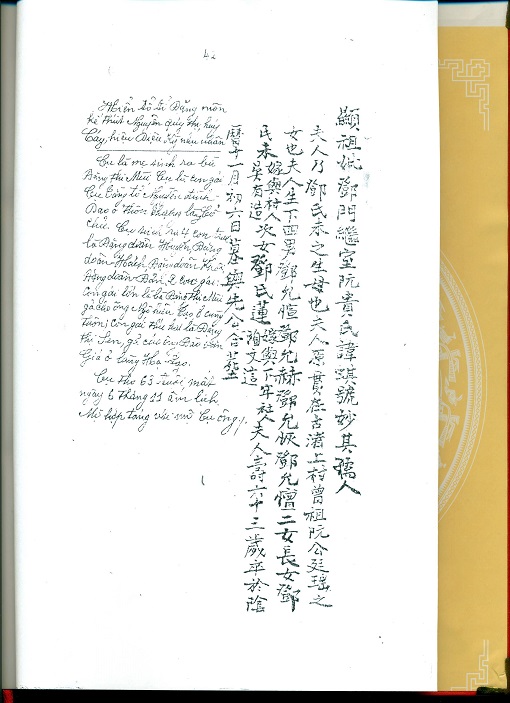 42
Hiển tổ tỉ Đặng môn
kế thất Nguyễn quý thị, húy
Cáy, hiệu Diệu Kỳ nhụ nhân
Cụ là mẹ sinh ra bà
Đặng thị Mùi. Cụ là con gái
Cụ tằng tổ Nguyễn đình
Dao ở thôn Thượng làng Cổ
Chử. Cụ sinh ra 4 con trai
là Đặng doãn Huyên, Đặng
doãn Hách, Đặng doãn Khôi
Đặng doãn Đản, 2 con gái:
Con gái lớn là bà Đặng thị Mùi
gả cho ông Ngô hữu Tạo ở cùng
thôn; Con gái thứ hai là Đặng
thị Sen, gả cho ông Phan Văn
Giá ở làng
Cụ thọ 63 tuổi, mất
ngày 6 tháng 11 âm lịch
Mộ hợp táng với mộ Cụ ông.
顯祖妣鄧門繼室阮貴氏諱蜞號妙其孺人
夫人乃鄧氏未之生母也夫人原貫在古渚上村曾祖阮公廷瑤之
女也夫人生下四男鄧允愃鄧允赫鄧允恢鄧允儃二女長女鄧
氏未嫁與村人吳有造次女鄧氏蓮嫁與下年社人潘文這夫人壽六十三歲卒於陰
曆十一月初六日墓與先公合葬